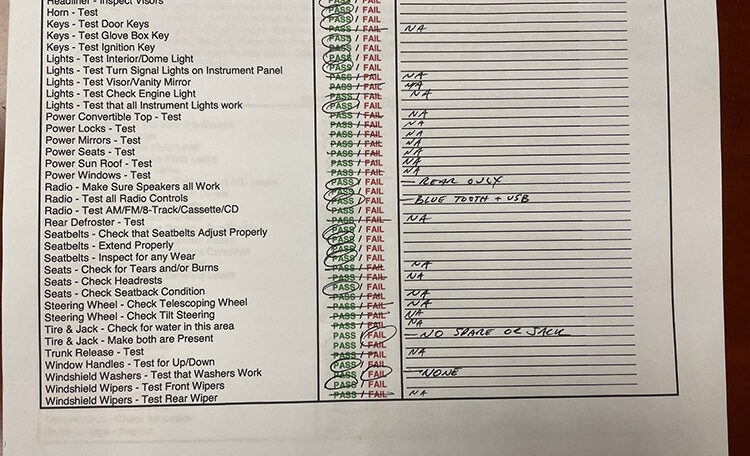 Headliner - Inspect Visors PASS / FAIL
Horn - Test PASS / FAIL
Keys - Test Door Keys PASS / FAIL
Keys - Test Glove Box Key PASS / FAIL NA
Keys - Test Ignition Key PASS / FAIL
Lights - Test Interior/Dome Light PASS / FAIL
Lights - Test Turn Signal Lights on Instrument Panel PASS / FAIL NA
Lights - Test Visor/Vanity Mirror PASS / FAIL NA
Lights - Test Check Engine Light PASS / FAIL NA
Lights - Test that all Instrument Lights work PASS / FAIL
Power Convertible Top - Test PASS / FAIL NA
Power Locks - Test PASS / FAIL NA
Power Mirrors - Test PASS / FAIL NA
Power Seats - Test PASS / FAIL NA
Power Sun Roof - Test PASS / FAIL NA
Power Windows - Test PASS / FAIL NA
Radio - Make Sure Speakers all Work PASS / FAIL – REAR ONLY
Radio - Test all Radio Controls PASS / FAIL – BLUE TOOTH + USB
Radio - Test AM/FM/8-Track/Cassette/CD PASS / FAIL
Rear Defroster - Test PASS / FAIL NA
Seatbelts - Check that Seatbelts Adjust Properly PASS / FAIL
Seatbelts - Extend Properly PASS / FAIL
Seatbelts - Inspect for any Wear PASS / FAIL
Seats - Check for Tears and/or Burns PASS / FAIL NA
Seats - Check Headrests PASS / FAIL NA
Seats - Check Seatback Condition PASS / FAIL NA
Steering Wheel - Check Telescoping Wheel PASS / FAIL NA
Steering Wheel - Check Tilt Steering PASS / FAIL NA
Tire & Jack - Check for water in this area PASS / FAIL NA
Tire & Jack - Make both are Present PASS / FAIL – NO SPARE OR JACK
Trunk Release - Test PASS / FAIL NA
Window Handles - Test for Up/Down PASS / FAIL
Windshield Washers - Test that Washers Work PASS / FAIL – NONE
Windshield Wipers - Test Front Wipers PASS / FAIL
Windshield Wipers - Test Rear Wiper PASS / FAIL NA